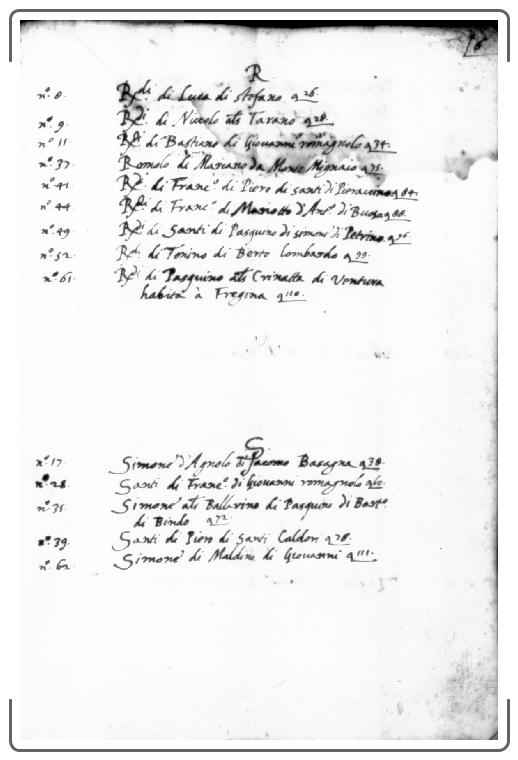 R
nº. 8. Rdi di Luca di stefano q 26.
nº. 9. Rdi di Niccolo als Tarano q 28.
nº. 11 Rdi di Bastiano di Giovanni romagnolo q 34.
nº. 37. Romolo di Mariano da Monte Mignaio q 75.
nº. 41 Rdi di Francº di Piero di santi di Pieraccino q 84.
nº. 44. Rdi di Francº di Mariotto d'Antº. di Buosa q 88.
nº. 49. Rdi di Santi di Pasquino di simone di Petrino q 96.
nº. 52. Rdi di Tonino di Berto lombardo q 99.
nº. 61. Rdi di Pasquino als Crinatta di Ventura
habita à Fregina q 110.
S
nº. 17. Simone d'Agnolo di Jacomo Basagna q 38.
nº. 28. Santi di Francº. di Giovanni romagnolo q 60.
nº. 35. Simone als Ballerino di Pasquino di Bastº.
di Bindo q 72.
nº. 39. Santi di Piero di Santi Caldori q 78.
nº. 62. Simone di Maldino di Giovanni q 111.